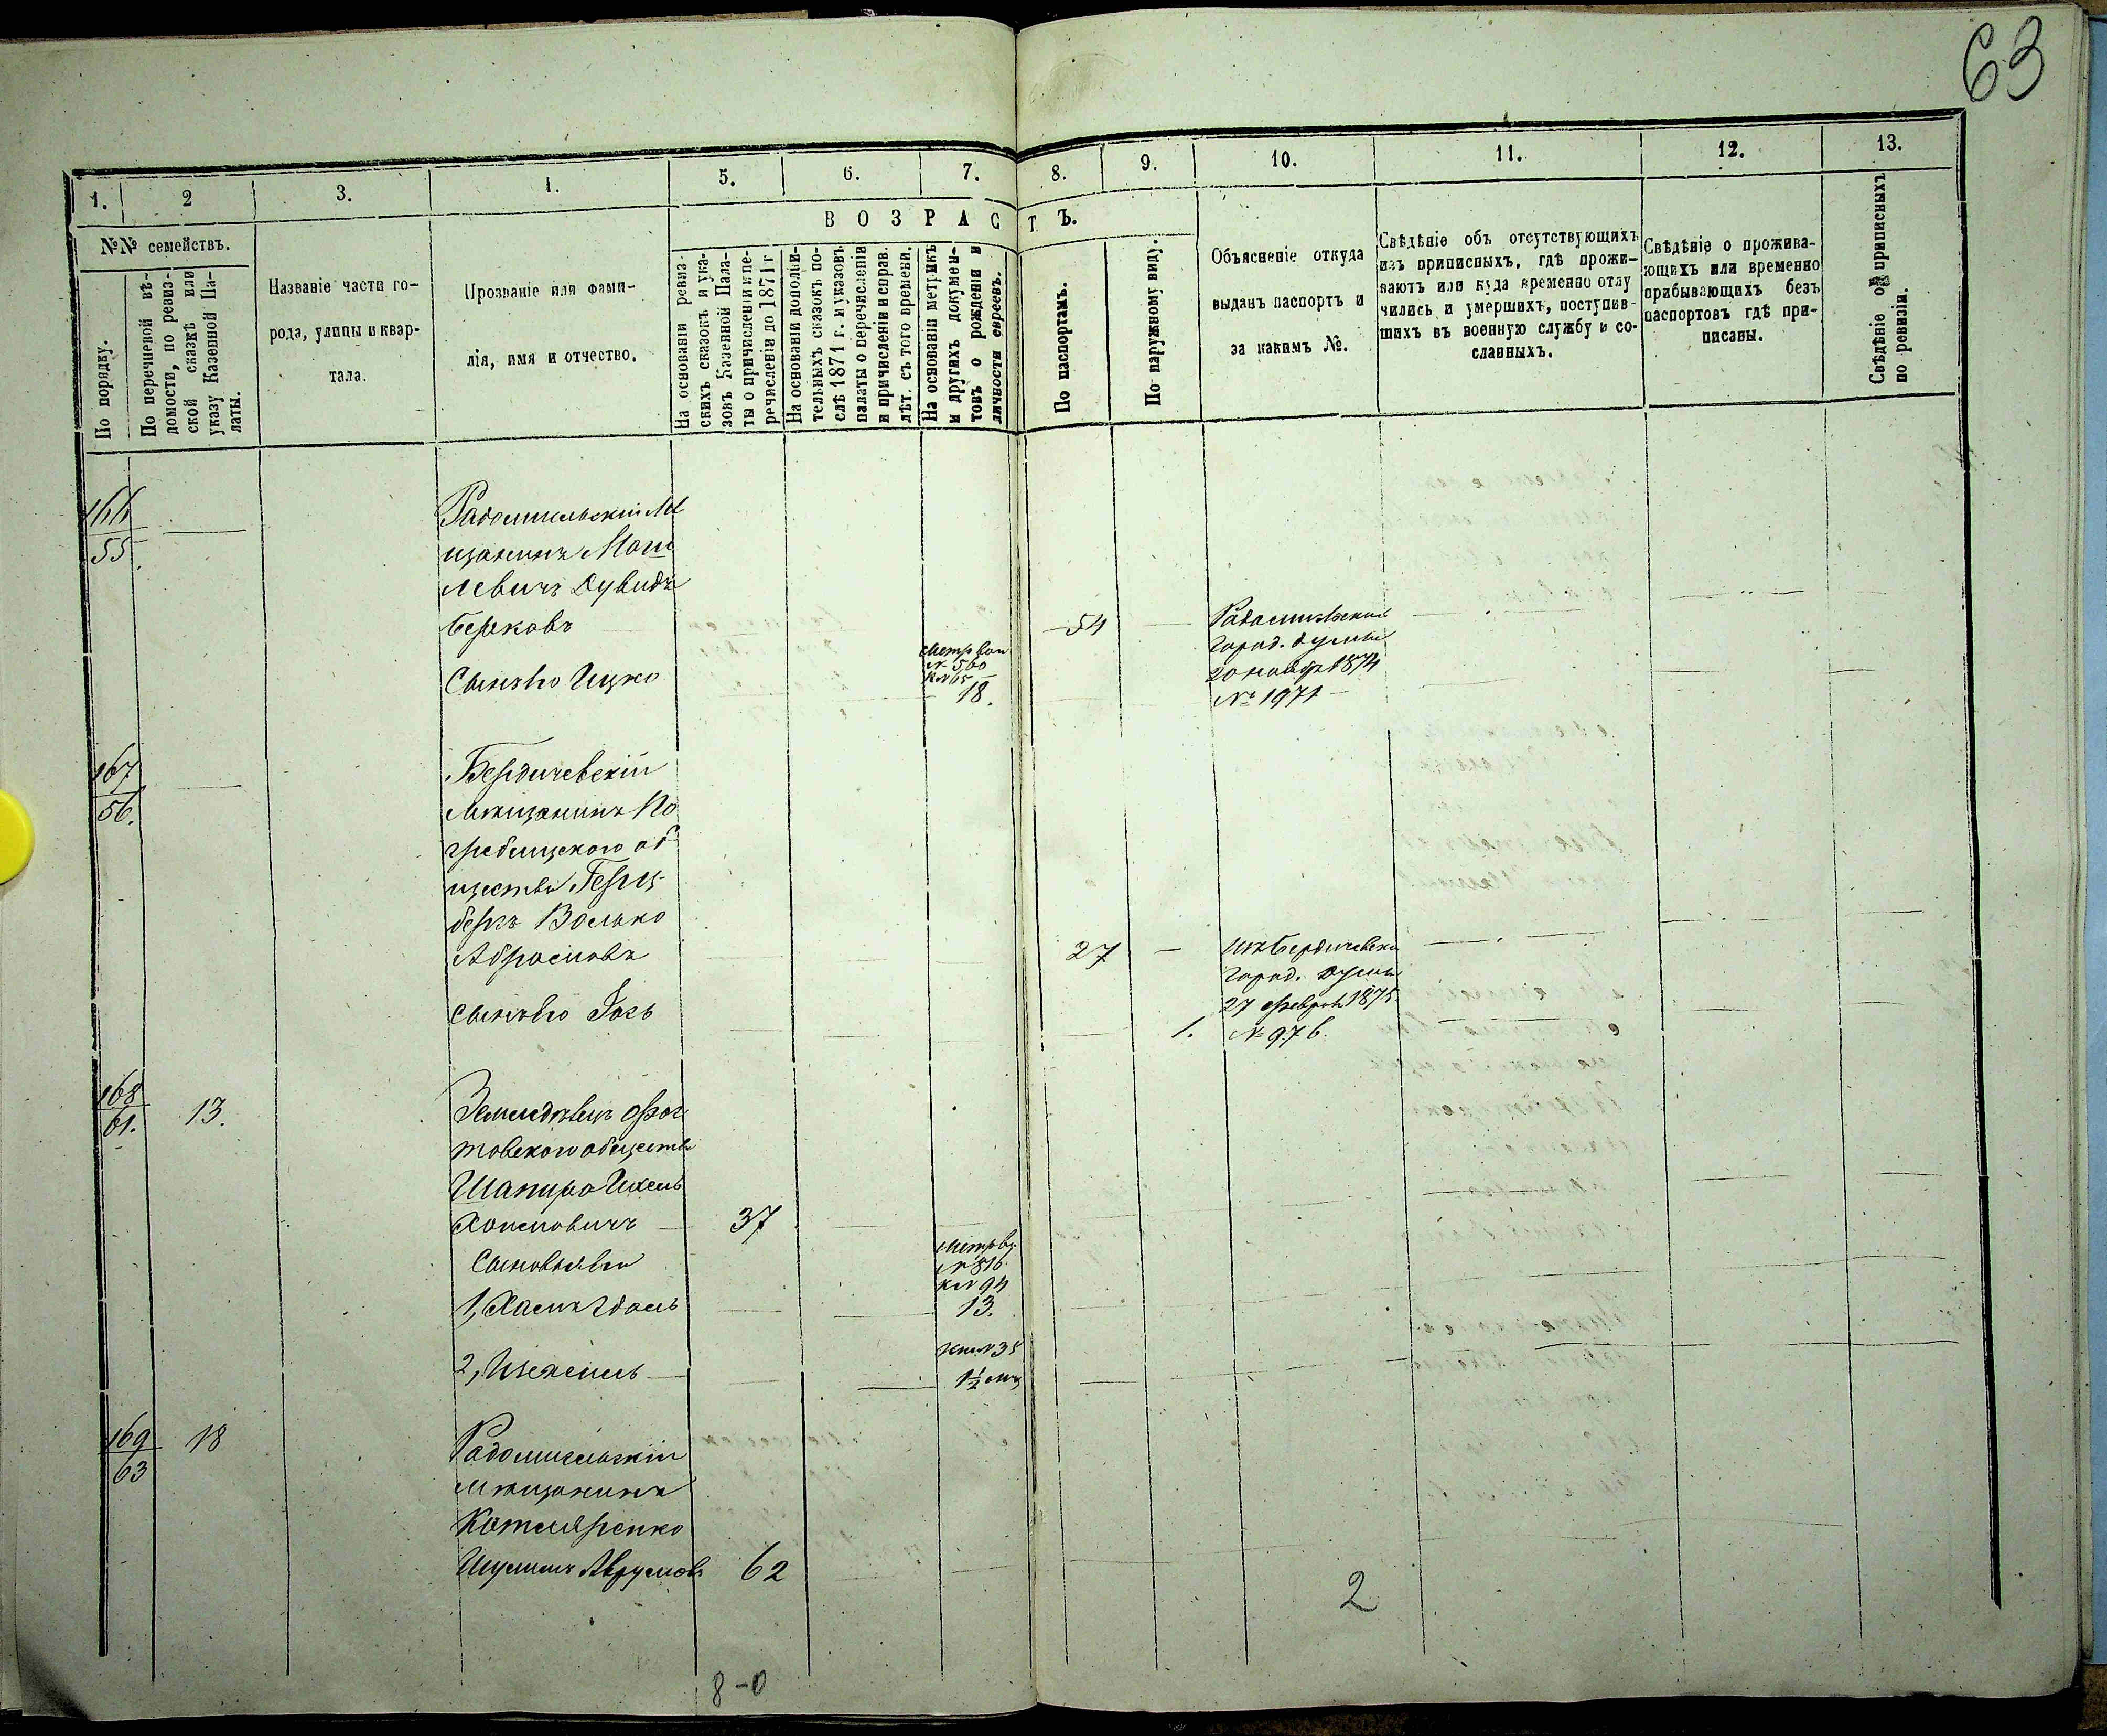 63
1.
2
3.
4.
5.
6.
7.
8.
9.
10.
11.
12.
13.
№№ семействъ.
По порядку.
По перечневой вѣ-
домости, по ревиз-
ской сказкѣ или
указу Казенной Па-
латы.
Названіе части го-
рода, улицы и квар-
тала.
Прозваніе или фами-
лія, имя и отчество.
ВОЗРАСТЪ.
На основаніи ревиз-
скихъ сказокъ и ука-
зовъ Казенной Пала-
ты о причисленіи и пе-
речисленіи до 1871 г
На основаніи дополни-
тельныхъ сказокъ по-
слѣ 1871 г. и указовъ
палаты о перечисленіи
и причисленіи и справ.
лѣт. съ того времени.
На основаніи метрикъ
и другихъ докумен-
товъ о рожденіи и
личности евреевъ.
По паспортамъ.
По наружному виду.
Объясненіе откуда
выданъ паспортъ и
за какимъ №.
Свѣдѣніе объ отсутствующихъ
изъ приписныхъ, гдѣ прожи-
ваютъ или куда временно отлу
чились и умершихъ, поступив-
шихъ въ военную службу и со-
сланныхъ.
Свѣдѣніе о прожива-
ющихъ или временно
прибывающихъ безъ
паспортовъ гдѣ при-
писаны.
Свѣдѣніе объ приписныхъ
по ревизіи.
166
55
Радомысльскій Мѣ
щанинъ Моги
левичъ Дувидъ
Берковъ
54
Радомысльской
город. думы
20 ноябр 1874
№ 1971
Сынъ его Ицко
метр вып
№ 560
к № 65
18.
167
56.
Бердичевскій
мѣщанинъ По
гребищскаго об
щества Герц-
бергъ Волько
Абрамовъ
27
Изъ Бердичевск
город. думы
27 феврал 1875
№ 976.
сынъ его Іось
1.
168
61.
13.
Земледѣлецъ
товскаго общества
Шапиро Ихель
Хаимовичъ
37
Сыновья его
метр вы
№ 816
к № 94
1, Хаимъ
13.
№ 35
2,
1½ мц
169
63
18
Радомысльскій
мѣщанинъ
Котляренко
Шулимъ Аврумов
62
2
8-0